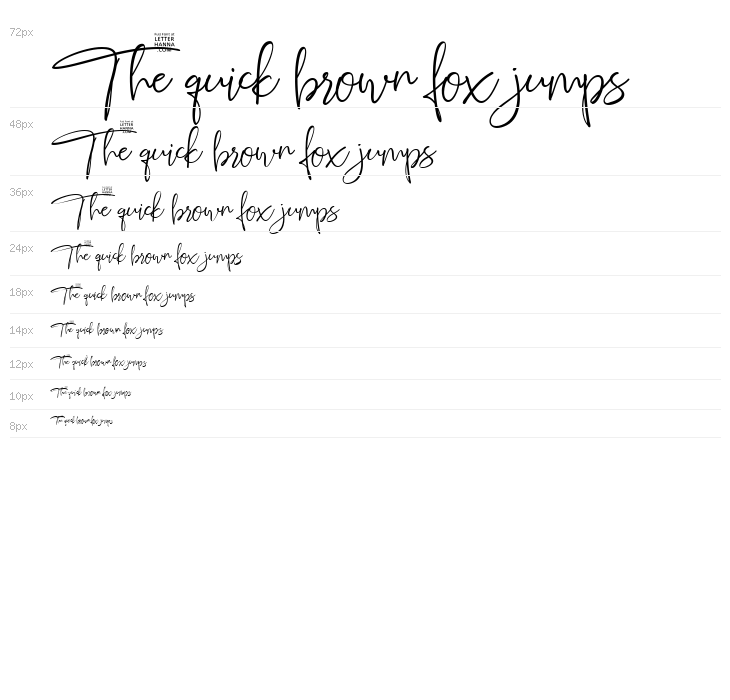 72px
Full Font at
LETTER
HANNA
.COM
The quick brown fox jumps
48px
LETTER
HANNA
.COM
The quick brown fox jumps
36px
LETTER
HANNA
The quick brown fox jumps
24px
The quick brown fox jumps
18px
The quick brown fox jumps
14px
The quick brown fox jumps
12px
The quick brown fox jumps
10px
The quick brown fox jumps
8px
The quick brown fox jumps